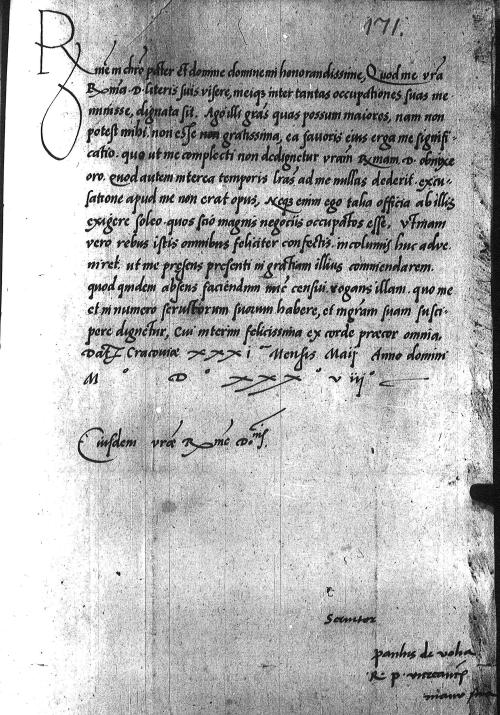 171.
Rme in chro pater et domine domine mi honorandissime, Quod me vra
Rma. D. literis suis visere, meiqs inter tantas occupationes suas me-
minisse, dignata sit. Ago illi gras quas possum maiores, nam non
potest mihi non esse non gratissima, ea favoris eius erga me signifi-
catio. quo ut me complecti non dedignetur vram Rmam. D. obnixe
oro. quod autem interea temporis lras ad me nullas dederit. excu-
satione apud me non erat opus, Neqs enim ego talia officia ab illis
exigere soleo. quos scio magnis negociis occupatos esse. Utinam
vero rebus istis omnibus feliciter confectis. incolumis huc adve-
niret. ut me presens presenti in gratiam illius commendarem.
quod quidem absens faciendum mihi censui. rogans illam. quo me
et in numero servitorum suorum habere, et in gram suam susci-
pere dignetur, Cui interim felicissima ex corde precor omnia,
Dat Cracoviæ xxx i Mensis Maij Anno domini
M ° D ° xxx ° v iij °
Eiusdem vræ Rme Do.nis
Servitor
paulus de volia
R. p.